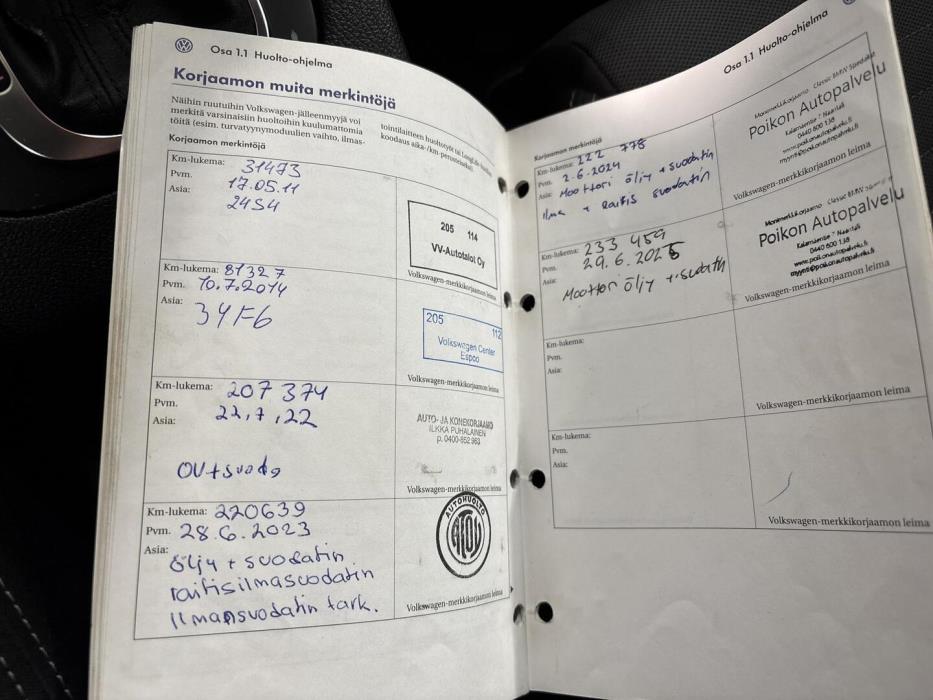 Osa 1.1 Huolto-ohjelma
Korjaamon muita merkintöjä
Näihin ruutuihin Volkswagen-jälleenmyyjä voi
merkitä varsinaisiin huoltoihin kuulumattomia
töitä (esim. turvatyynymoduulien vaihto, ilmas-
tointilaitteen huoltotyöt tai LongLife-huollon
koodaus aika-/km-perusteiseksi)
Korjaamon merkintöjä
Km-lukema: 31473
Pvm. 17.05.11
Asia: 24S4
205 114
VV-Autotalot Oy
Volkswagen-merkkikorjaamon leima
Km-lukema: 81327
Pvm. 10.7.2014
Asia: 34F6
205 112
Volkswagen Center
Espoo
Volkswagen-merkkikorjaamon leima
Km-lukema: 207 374
Pvm. 22,7,22
Asia:
ÖV+suoda
AUTO- JA KONEKORJAAMO
ILKKA PUHALAINEN
p. 0400-852 963
Volkswagen-merkkikorjaamon leima
Km-lukema: 220639
Pvm. 28.6.2023
Asia: öljy + suodatin
raitisilmasuodatin
Ilmansuodatin tark.
AUTOHUOLTO
Volkswagen-merkkikorjaamon leima
Osa 1.1 Huolto-ohjelma
Korjaamon merkintöjä
Km-lukema: 222 778
Pvm. 2.6.2024
Asia: Moottori öljy + suodatin
ilma + raitis suodatin
Monimerkkikorjaamo Classic BMW Specialist
Poikon Autopalvelu
Kalamiehentie 7 Naantali
0440 600 138
www.poikonautopalvelu.fi
myynti@poikonautopalvelu.fi
Volkswagen-merkkikorjaamon leima
Km-lukema: 233 459
Pvm. 29.6.2025
Asia: Moottori öljy + suodatin
Monimerkkikorjaamo Classic BMW
Poikon Autopalvelu
0440 600 138
www.poikonautopalvelu.fi
myynti@poikonautopalvelu.fi
Volkswagen-merkkikorjaamon leima
Km-lukema:
Pvm.
Asia:
Volkswagen-merkkikorjaamon leima
Km-lukema:
Pvm.
Asia:
Volkswagen-merkkikorjaamon leima